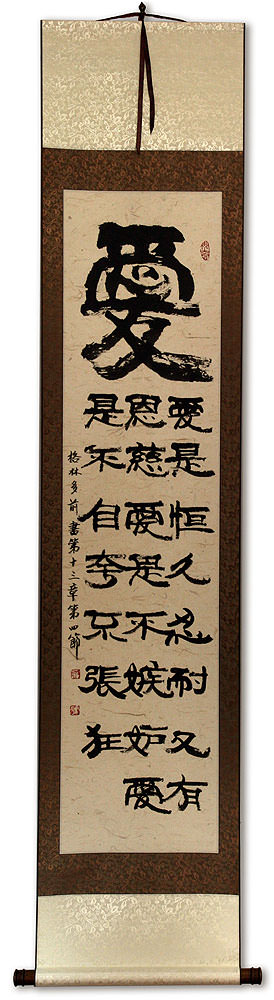 愛
愛是恒久忍耐又有
恩慈愛是不嫉妒愛
是不自夸不張狂
格林多前書第十三章第四節